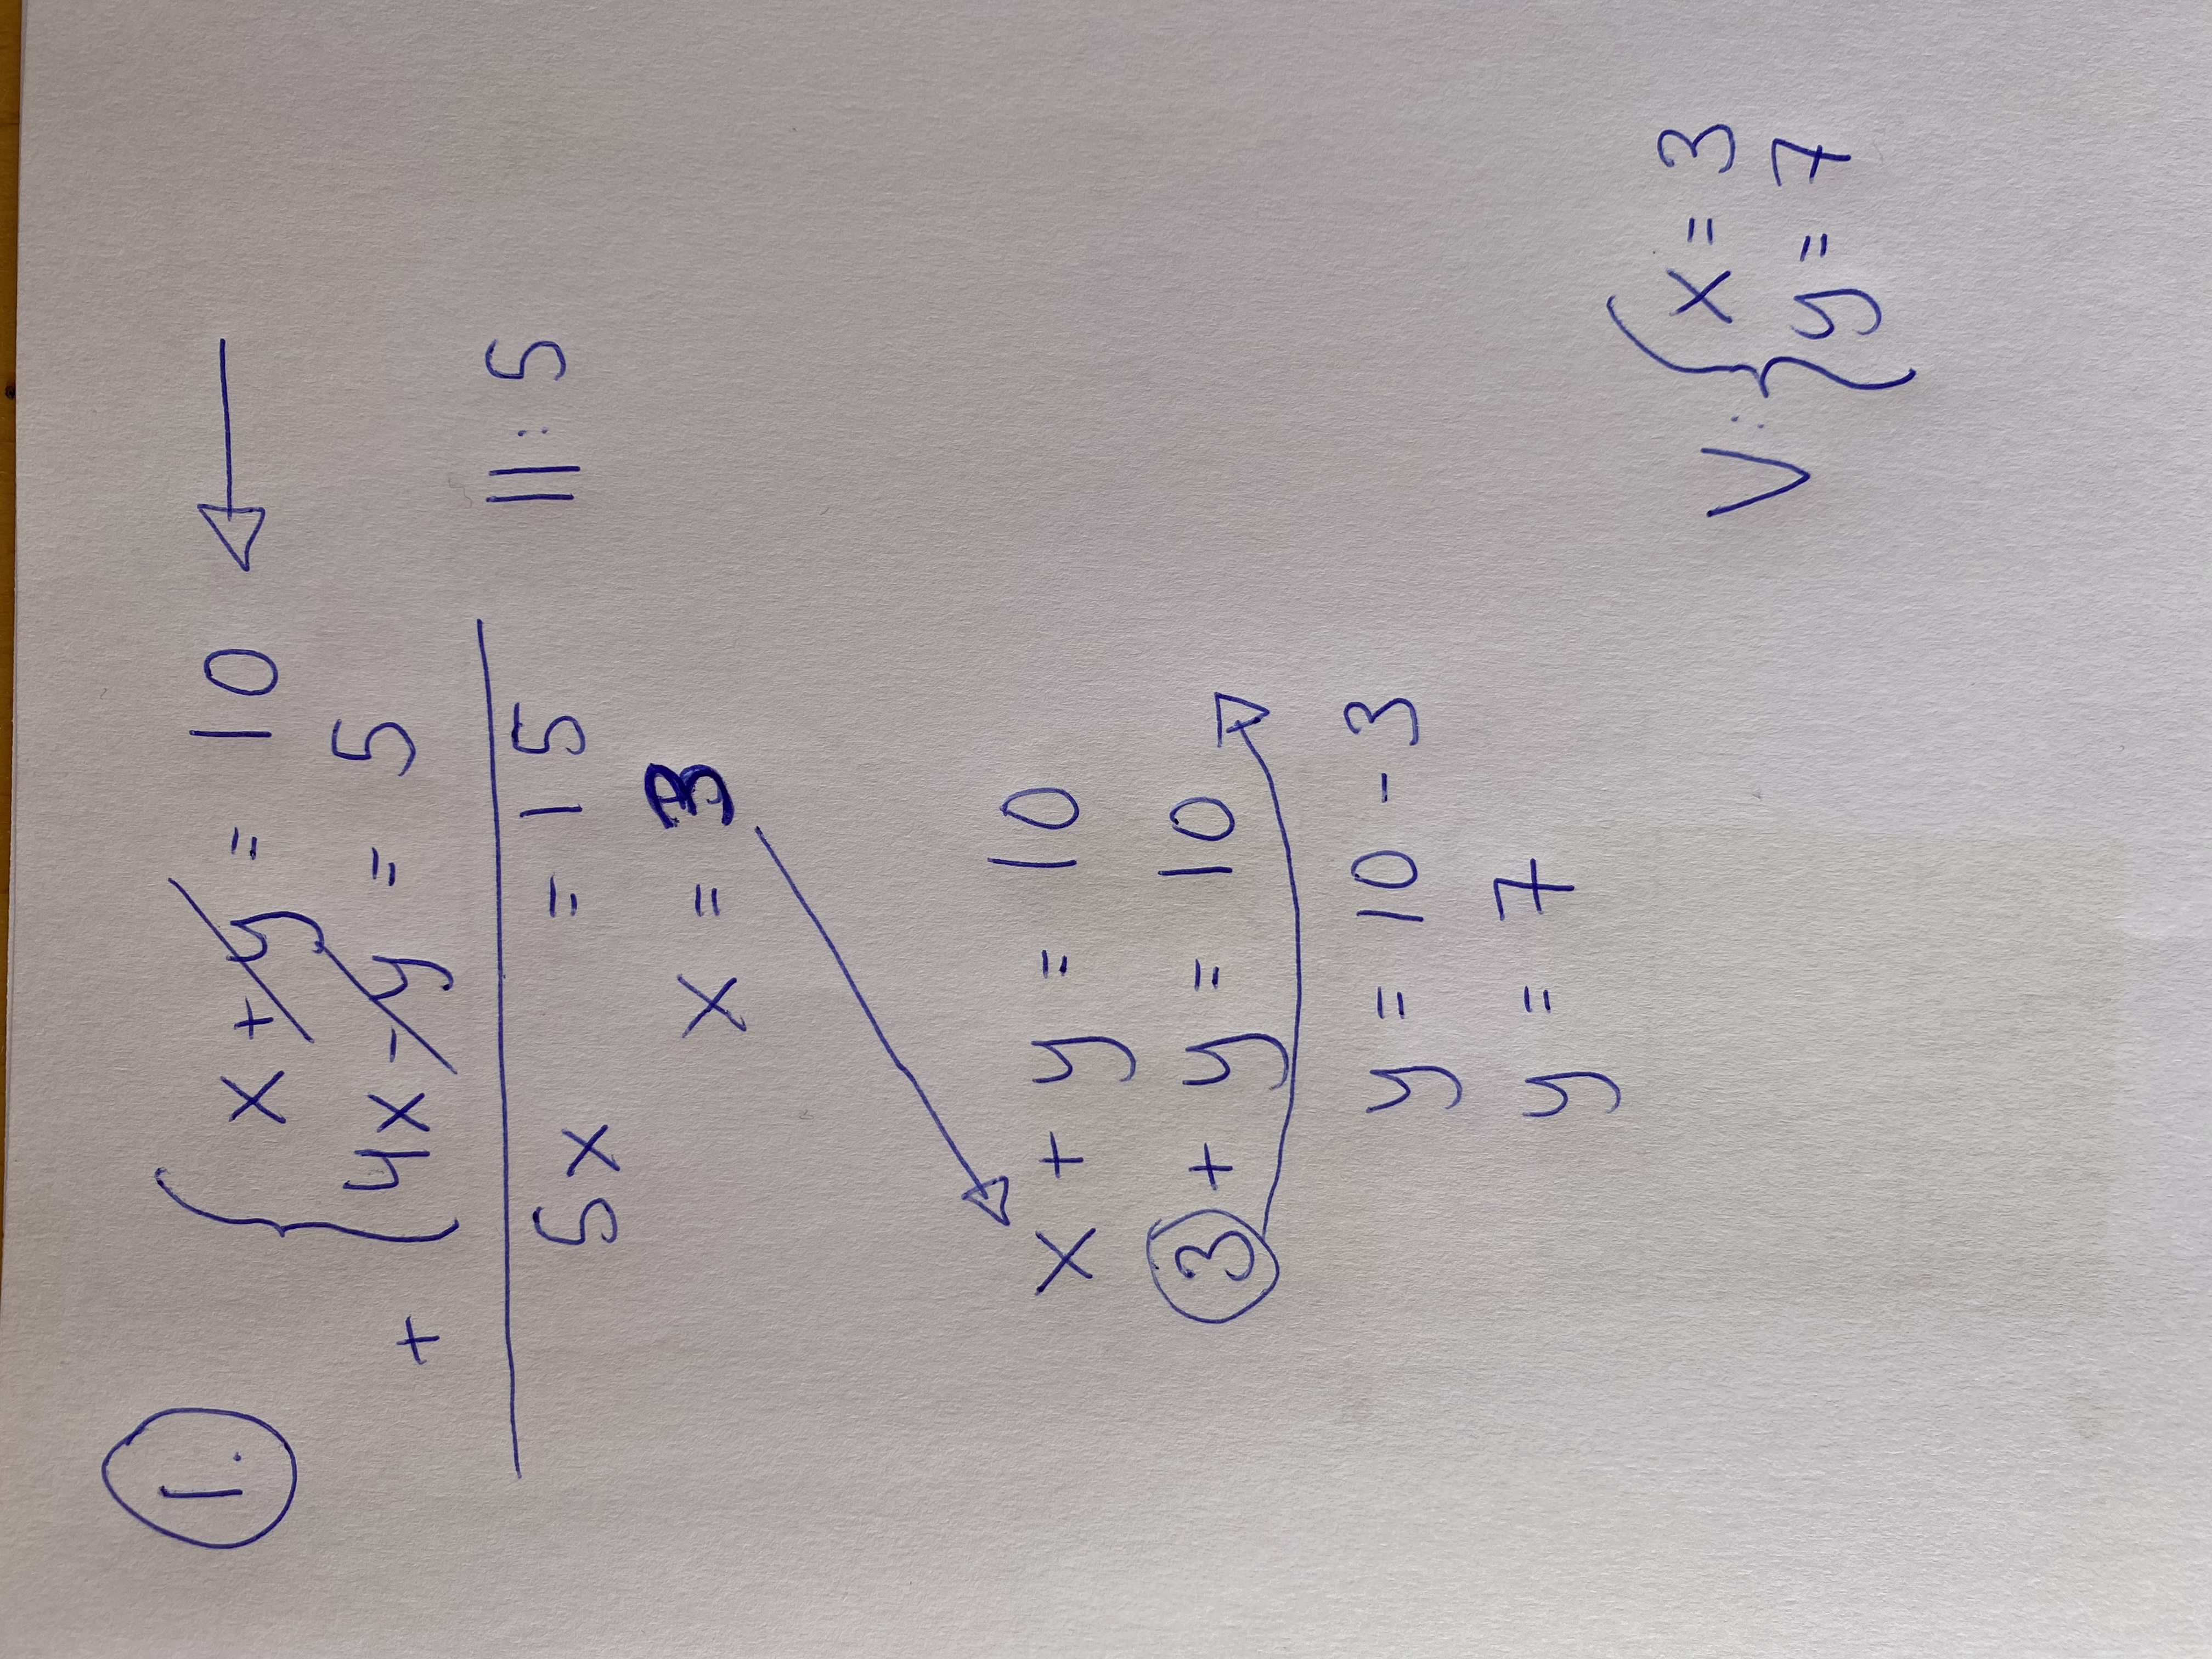 1.
x + y = 10
+ 4x - y = 5
5x = 15 ||: 5
x = 3
x + y = 10
3 + y = 10
y = 10 - 3
y = 7
V: { x = 3
y = 7